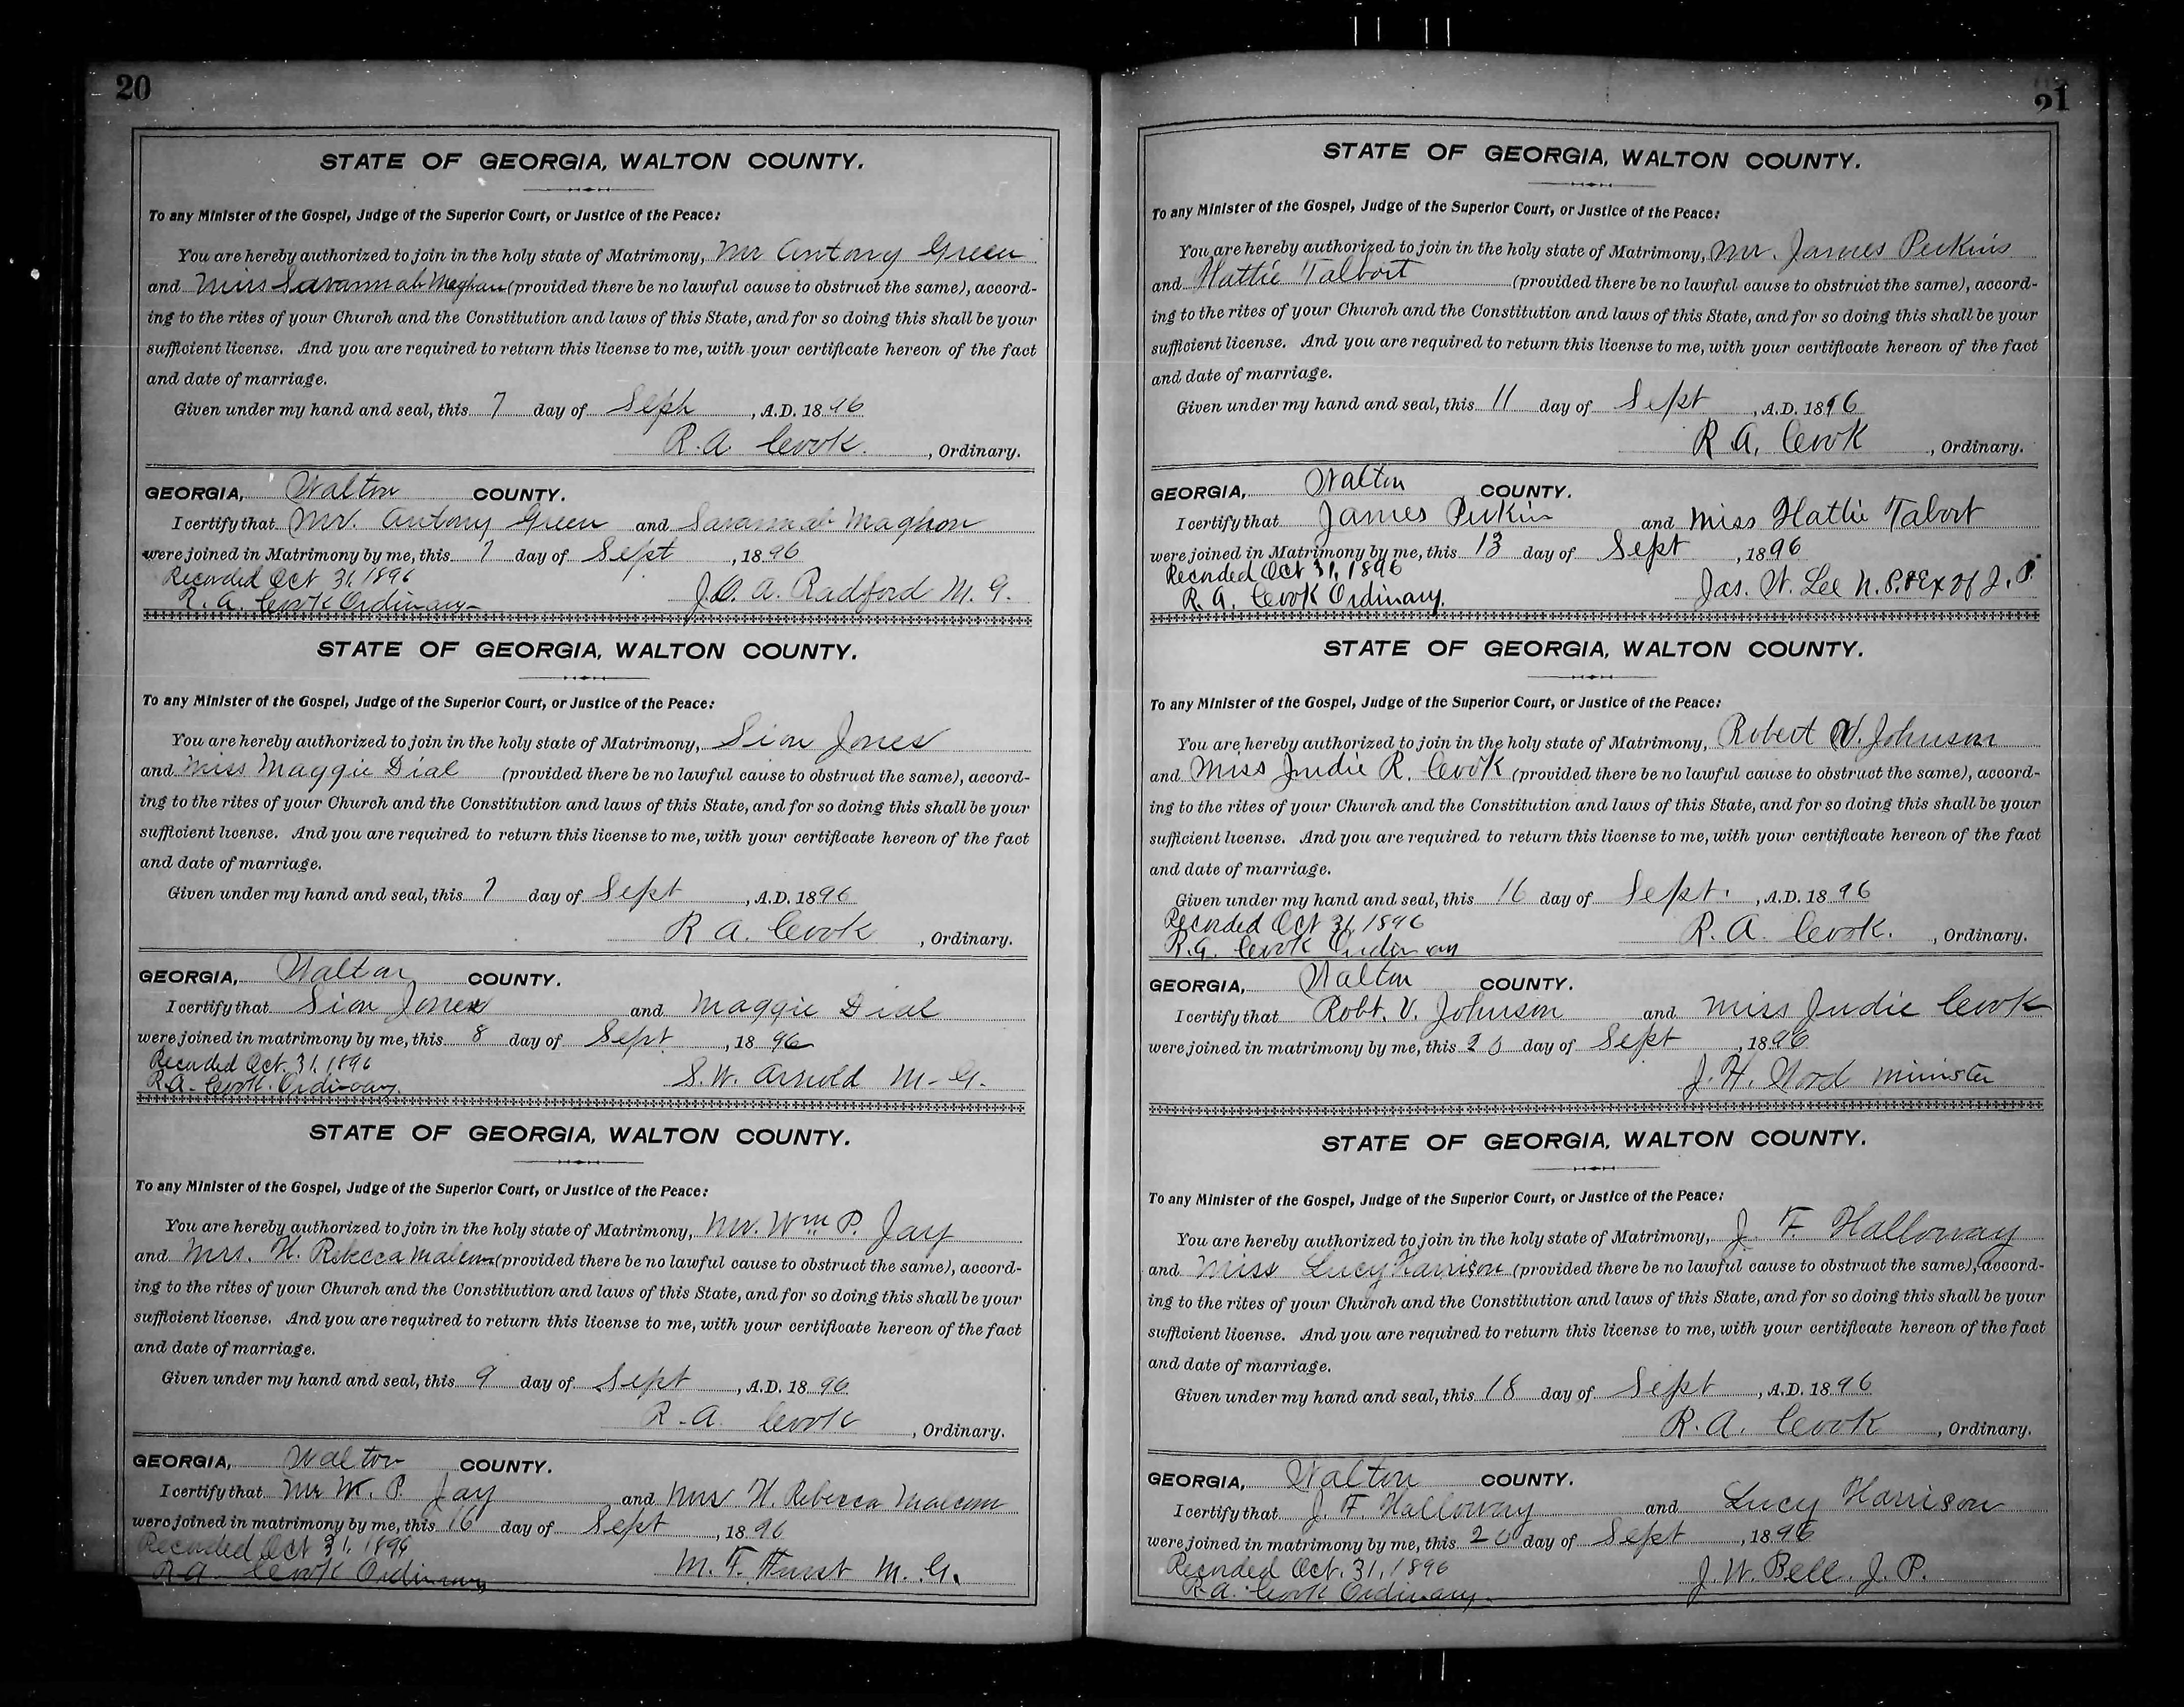 20
STATE OF GEORGIA, WALTON COUNTY.
To any Minister of the Gospel, Judge of the Superior Court, or Justice of the Peace:
You are hereby authorized to join in the holy state of Matrimony, Mr Antony Green
and Miss Savannah Maghon (provided there be no lawful cause to obstruct the same), accord-
ing to the rites of your Church and the Constitution and laws of this State, and for so doing this shall be your
sufficient license. And you are required to return this license to me, with your certificate hereon of the fact
and date of marriage.
Given under my hand and seal, this 7 day of Sept, A.D. 1896
R. A. Cook, Ordinary.
GEORGIA, Walton COUNTY.
I certify that Mr. Antony Green and Savannah Maghon
were joined in Matrimony by me, this 7 day of Sept, 1896
Recorded Oct 31, 1896
R. A. Cook Ordinary
J. O. A. Radford M. G.
STATE OF GEORGIA, WALTON COUNTY.
To any Minister of the Gospel, Judge of the Superior Court, or Justice of the Peace:
You are hereby authorized to join in the holy state of Matrimony, Sion Jones
and Miss Maggie Dial (provided there be no lawful cause to obstruct the same), accord-
ing to the rites of your Church and the Constitution and laws of this State, and for so doing this shall be your
sufficient license. And you are required to return this license to me, with your certificate hereon of the fact
and date of marriage.
Given under my hand and seal, this 7 day of Sept, A.D. 1896
R A. Cook, Ordinary.
GEORGIA, Walton COUNTY.
I certify that Sion Jones and Maggie Dial
were joined in matrimony by me, this 8 day of Sept, 1896
Recorded Oct. 31, 1896
R. A. Cook. Ordinary.
S. W. Arnold M. G.
STATE OF GEORGIA, WALTON COUNTY.
To any Minister of the Gospel, Judge of the Superior Court, or Justice of the Peace:
You are hereby authorized to join in the holy state of Matrimony, Mr. Wm P. Jay
and Mrs. H. Rebecca Malcom (provided there be no lawful cause to obstruct the same), accord-
ing to the rites of your Church and the Constitution and laws of this State, and for so doing this shall be your
sufficient license. And you are required to return this license to me, with your certificate hereon of the fact
and date of marriage.
Given under my hand and seal, this 9 day of Sept, A.D. 1896
R. A. Cook, Ordinary.
GEORGIA, Walton COUNTY.
I certify that Mr W. P. Jay and Mrs H. Rebecca Malcom
were joined in matrimony by me, this 16 day of Sept, 1896
Recorded Oct 31, 1896
R A. Cook Ordinary
M. F. Hurst M. G.
21
STATE OF GEORGIA, WALTON COUNTY.
To any Minister of the Gospel, Judge of the Superior Court, or Justice of the Peace:
You are hereby authorized to join in the holy state of Matrimony, Mr. James Perkins
and Hattie Talbort (provided there be no lawful cause to obstruct the same), accord-
ing to the rites of your Church and the Constitution and laws of this State, and for so doing this shall be your
sufficient license. And you are required to return this license to me, with your certificate hereon of the fact
and date of marriage.
Given under my hand and seal, this 11 day of Sept, A.D. 1896
R A. Cook, Ordinary.
GEORGIA, Walton COUNTY.
I certify that James Perkins and Miss Hattie Tabort
were joined in Matrimony by me, this 13 day of Sept, 1896
Recorded Oct 31, 1896
R. A. Cook Ordinary.
Jas. W. Lee N. P. & Ex Of J. P.
STATE OF GEORGIA, WALTON COUNTY.
To any Minister of the Gospel, Judge of the Superior Court, or Justice of the Peace:
You are hereby authorized to join in the holy state of Matrimony, Robert V. Johnson
and Miss Judie R. Cook (provided there be no lawful cause to obstruct the same), accord-
ing to the rites of your Church and the Constitution and laws of this State, and for so doing this shall be your
sufficient license. And you are required to return this license to me, with your certificate hereon of the fact
and date of marriage.
Given under my hand and seal, this 16 day of Sept., A.D. 1896
Recorded Oct 31, 1896
R. A. Cook Ordinary
R. A. Cook., Ordinary.
GEORGIA, Walton COUNTY.
I certify that Robt. V. Johnson and Miss Judie Cook
were joined in matrimony by me, this 20 day of Sept, 1896
J. H. Word Minister
STATE OF GEORGIA, WALTON COUNTY.
To any Minister of the Gospel, Judge of the Superior Court, or Justice of the Peace:
You are hereby authorized to join in the holy state of Matrimony, J. F. Halloway
and Miss Lucy Harrison (provided there be no lawful cause to obstruct the same), accord-
ing to the rites of your Church and the Constitution and laws of this State, and for so doing this shall be your
sufficient license. And you are required to return this license to me, with your certificate hereon of the fact
and date of marriage.
Given under my hand and seal, this 18 day of Sept, A.D. 1896
R. A. Cook, Ordinary.
GEORGIA, Walton COUNTY.
I certify that J. F. Halloway and Lucy Harrison
were joined in matrimony by me, this 20 day of Sept, 1896
Recorded Oct. 31, 1896
R. A. Cook Ordinary.
J. W. Bell. J. P.